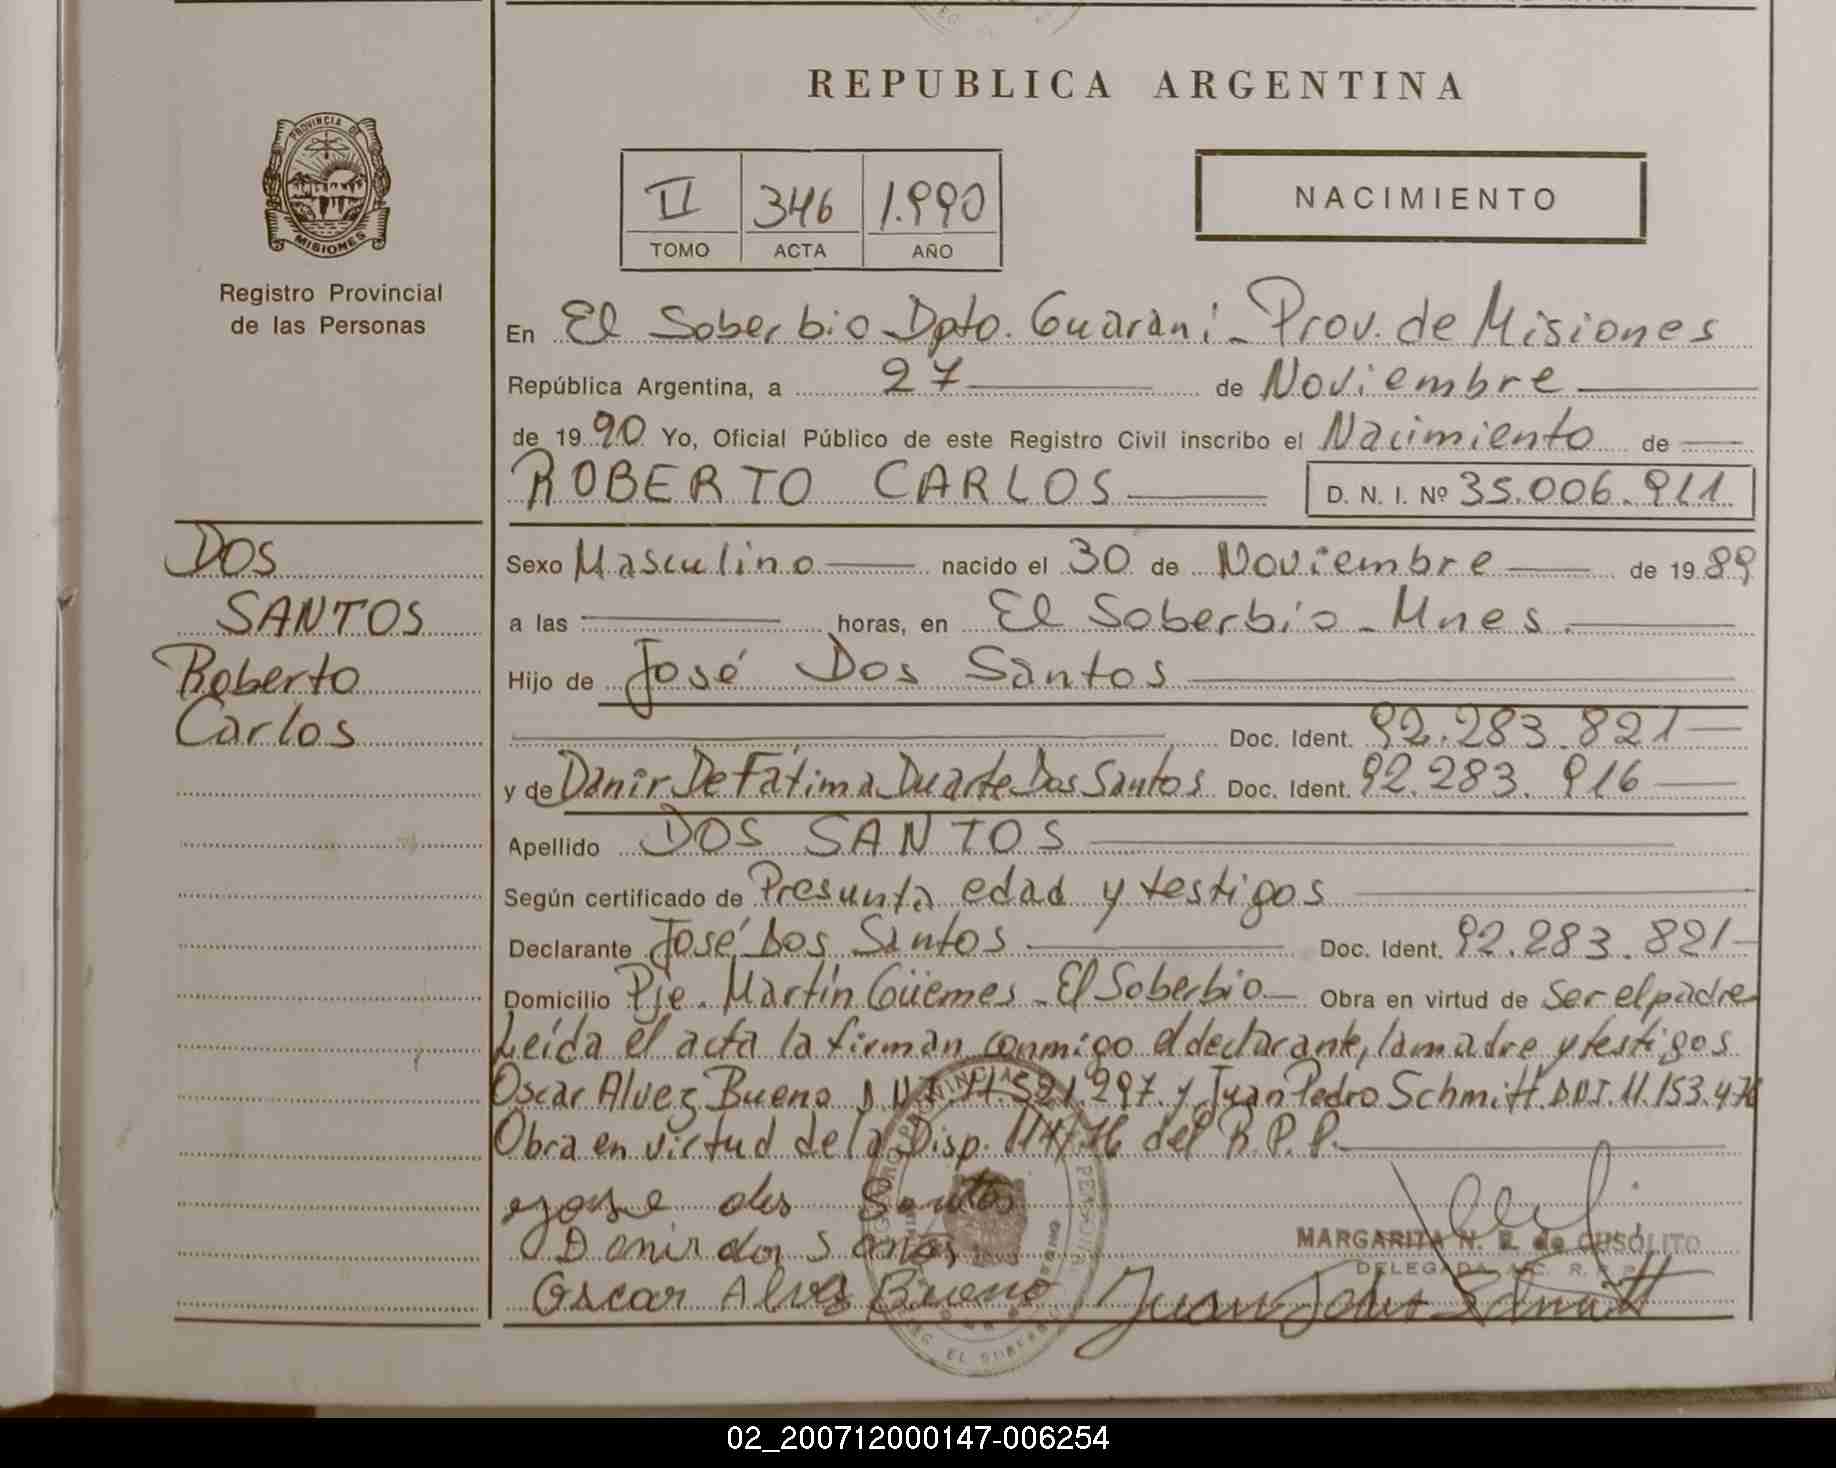 REPUBLICA ARGENTINA
PROVINCIA DE
MISIONES
Registro Provincial
de las Personas
II 346 1.990
TOMO ACTA AÑO
NACIMIENTO
En El Soberbio Dpto. Guaraní - Prov. de Misiones
República Argentina, a 27 de Noviembre
de 1990 Yo, Oficial Público de este Registro Civil inscribo el Nacimiento de
ROBERTO CARLOS D. N. I. Nº 35.006.911
DOS
SANTOS
Roberto
Carlos
Sexo Masculino nacido el 30 de Noviembre de 1989
a las horas, en El Soberbio - Mnes.
Hijo de José Dos Santos
Doc. Ident. 92.283.821
y de Danir De Fátima Duarte Dos Santos Doc. Ident. 92.283.916
Apellido DOS SANTOS
Según certificado de Presunta edad y testigos
Declarante José Dos Santos Doc. Ident. 92.283.821
Domicilio Pje. Martín Güemes - El Soberbio Obra en virtud de ser el padre
Leída el acta la firman conmigo el declarante, la madre y testigos
Oscar Alvez Bueno y Juan Pedro Schmitt. D.N.I. 11.153.476
Obra en virtud de la Disp. 114/76 del R.P.P.
dos Santos
Danir dos Santos
MARGARITA N. de CUSOLITO
DELEGADA
Oscar Alves Bueno
EL SOBERBIO
02_200712000147-006254